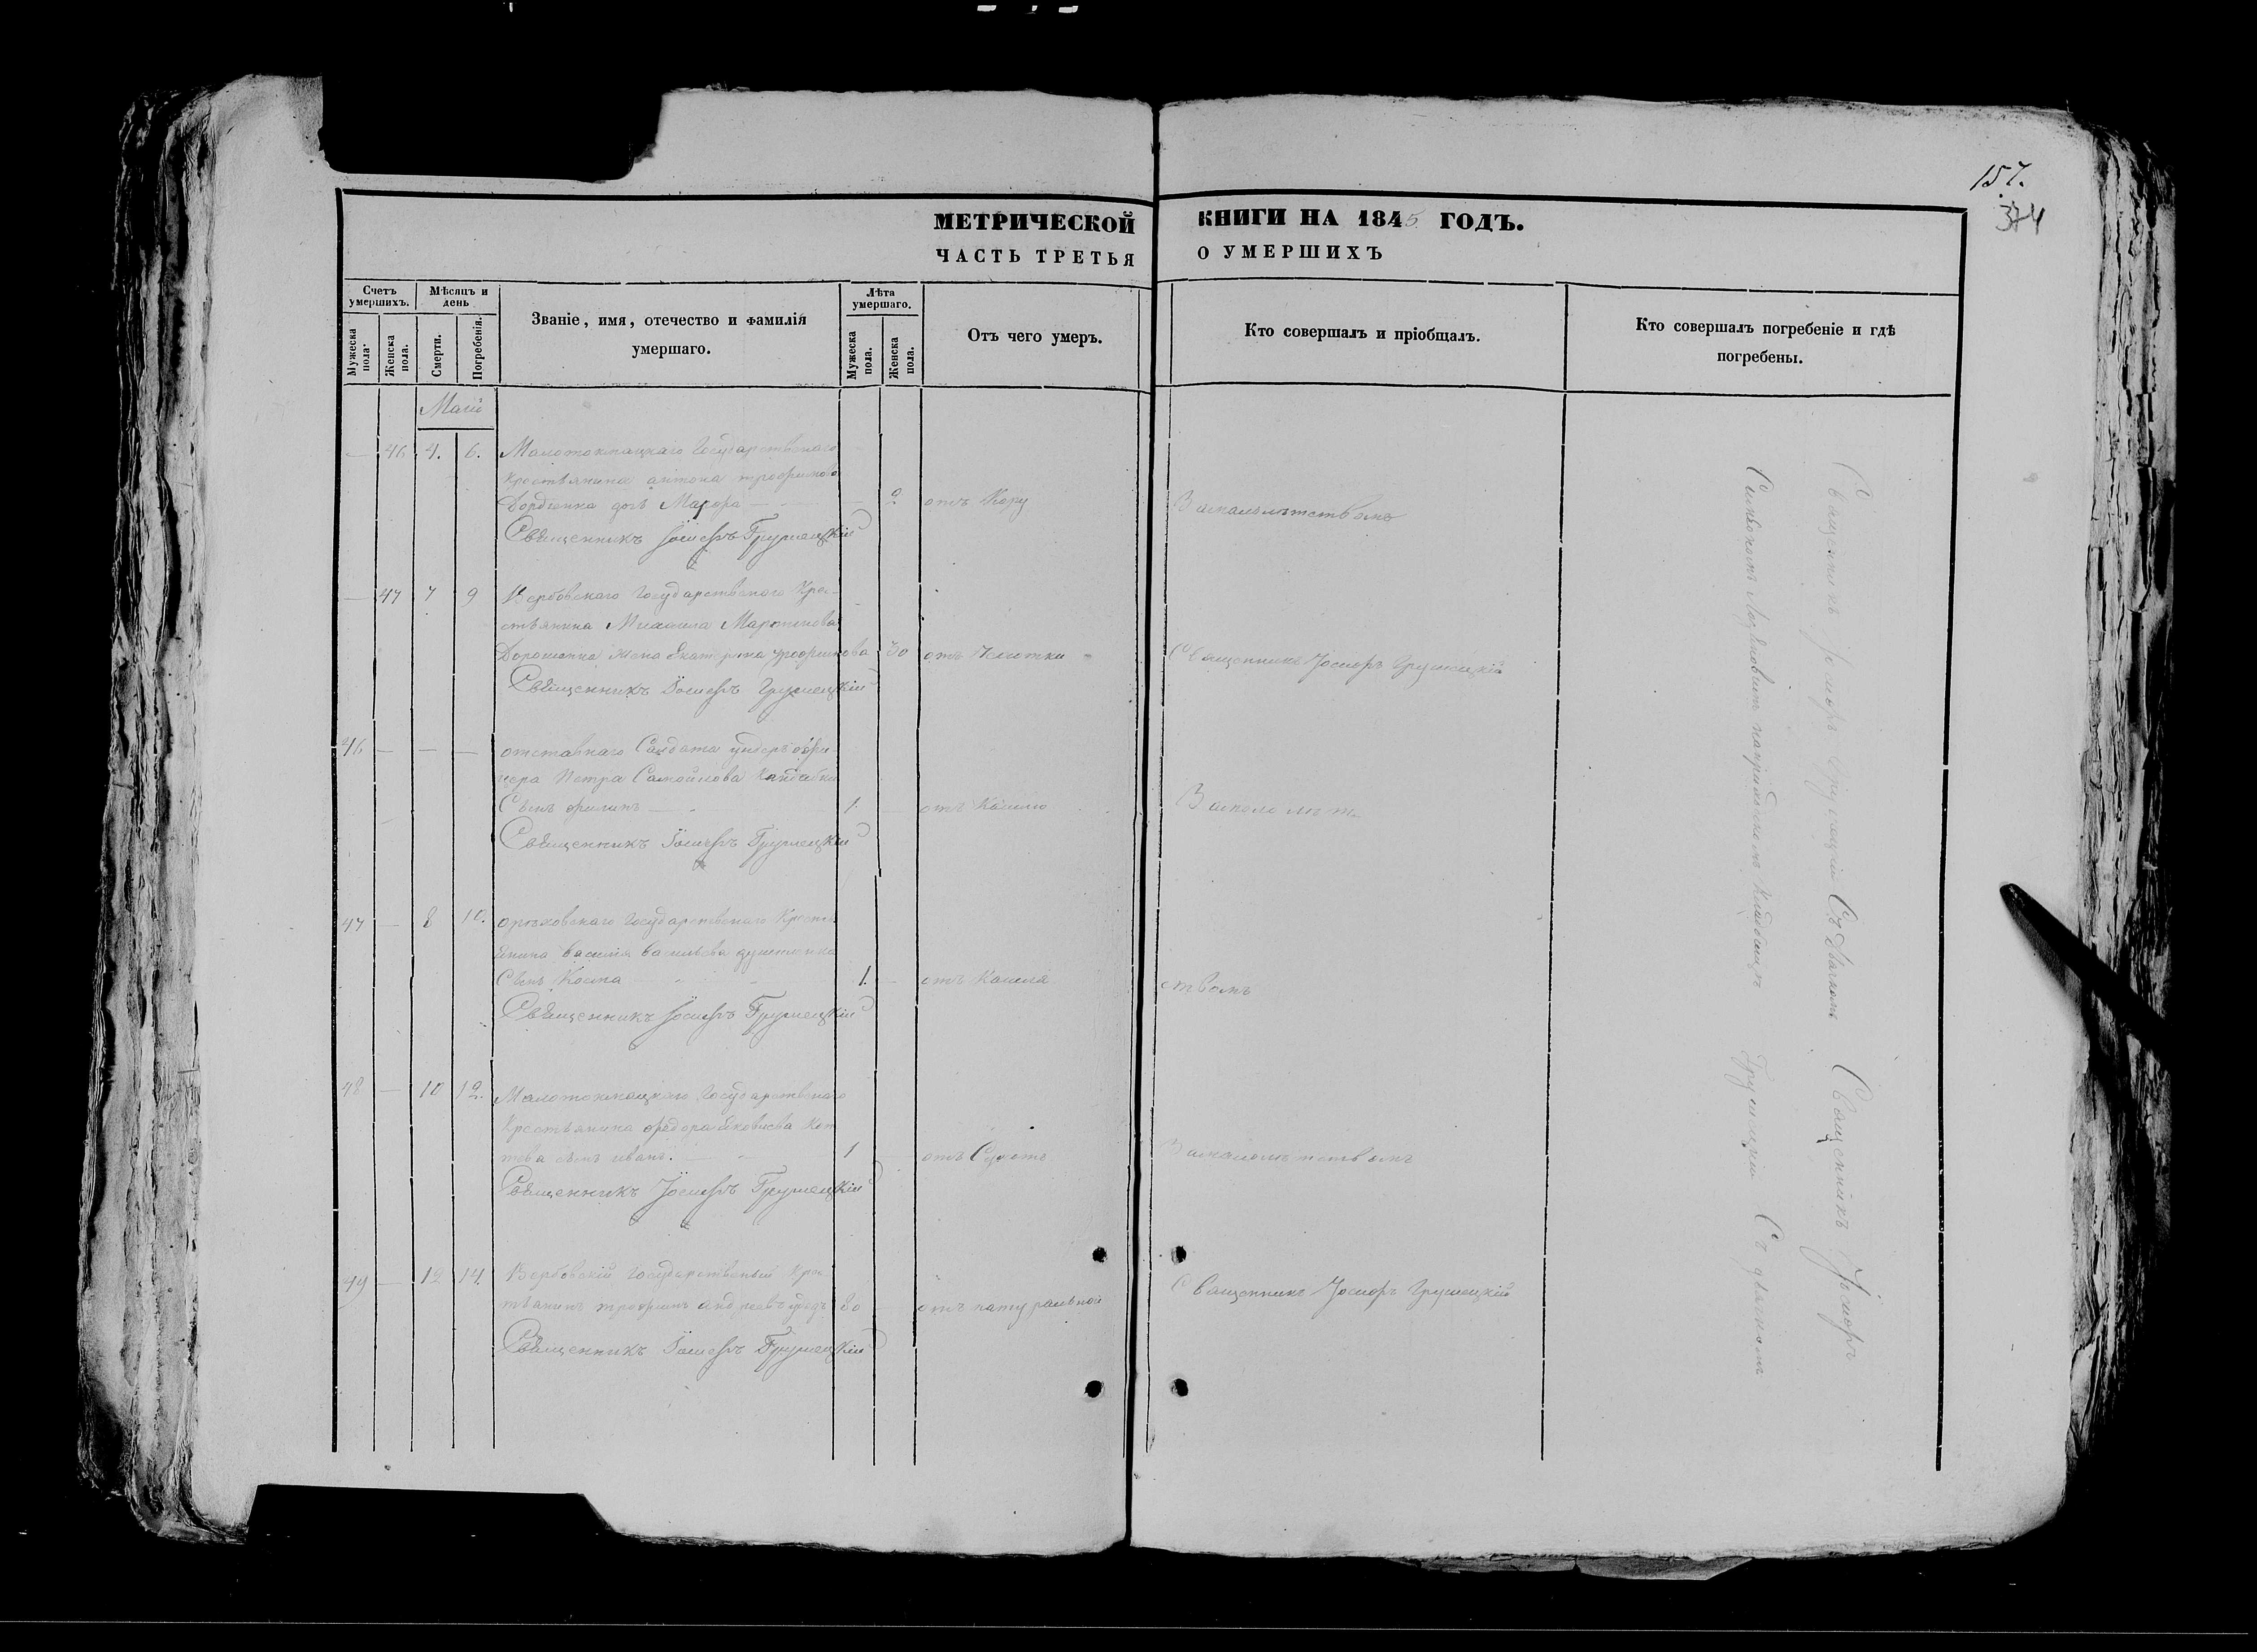 157.
374
МЕТРИЧЕСКОЙ КНИГИ НА 1845 ГОДЪ.
ЧАСТЬ ТРЕТЬЯ О УМЕРШИХЪ
Счетъ умершихъ.
Мужеска пола.
Женска пола.
Мѣсяцъ и день
Смерти.
Погребенія.
Званіе, имя, отечество и фамилія
умершаго.
Лѣта умершаго.
Мужеска пола.
Женска пола.
Отъ чего умеръ.
Кто совершалъ и пріобщалъ.
Кто совершалъ погребеніе и гдѣ
погребены.
Маій
— 46 4. 6. Малотокмацкаго Государственаго
крестьянина антона трофимова
дочь — 2 отъ Кору За малолѣтствомъ
Священникъ Іосифъ Грушецкій
— 47 7 9 Вербовскаго Государственаго Кре-
стьянина Михаила Мартинова
Дорошенка жена Екатерина 30 отъ Священникъ Іосифъ Грушецкій
Священникъ Іосифъ Грушецкій
46 — — — отставнаго Салдата ундеръ офи-
цера Петра Самойлова
Сынъ филипъ — 1. — отъ Кашлю За мало лѣт
Священникъ Іосифъ Грушецкій
47 — 8 10. орѣховскаго Государственаго Крест
янина василія васильева
Сынъ Косма 1. — отъ Кашля ствомъ
Священникъ Іосифъ Грушецкій
48 — 10 12. Малотокмацкаго Государственаго
Крестьянина федора Яковлева
сынъ иванъ. — 1 отъ За малолѣтствомъ
Священникъ Іосифъ Грушецкій
49 — 12 14. Вербовскій Государственый Кре
стьянинъ трофимъ андреевъ 80 — отъ натуральной Священникъ Іосифъ Грушецкій
Священникъ Іосифъ Грушецкій
Священникъ Іосифъ Грушецкій Съ Дьякономъ
на приходскомъ Кладбищѣ
Священникъ Іосифъ
Грушецкій Съ дьякономъ